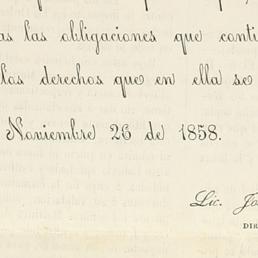 as las obligaciones que conti
los derechos que en ella se
Noviembre 26 de 1858.
Lic. Jo
DIR